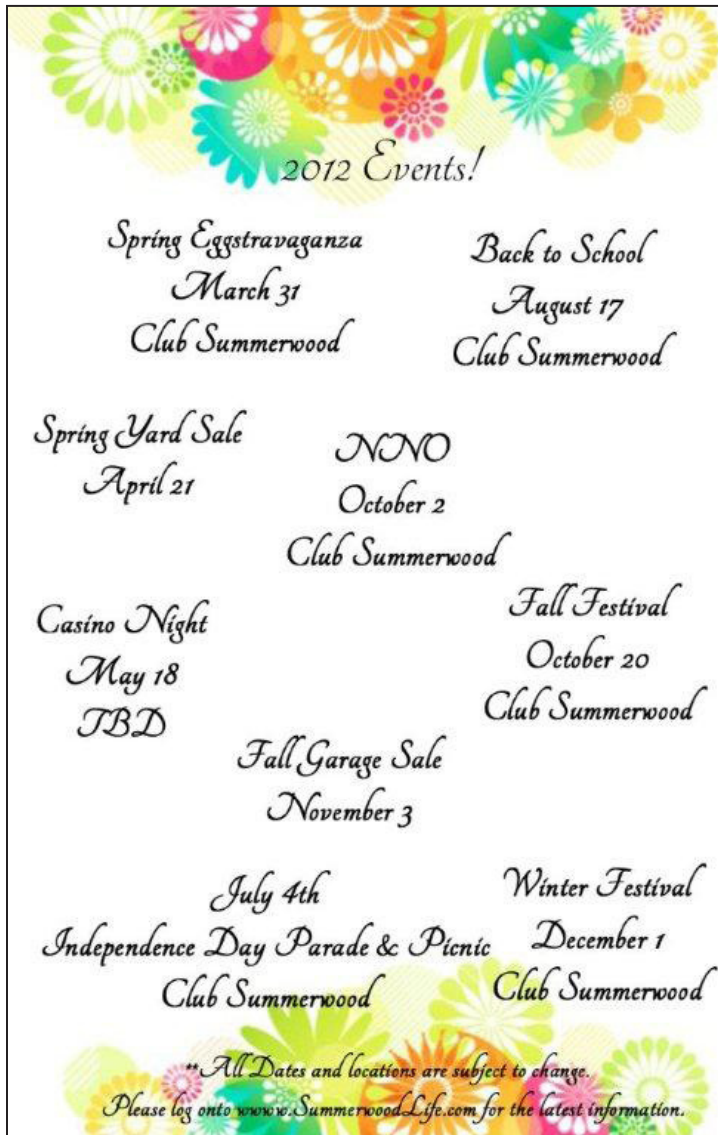 2012 Events!
Spring Eggstravaganza
March 31
Club Summerwood
Back to School
August 17
Club Summerwood
Spring Yard Sale
April 21
NNO
October 2
Club Summerwood
Casino Night
May 18
TBD
Fall Festival
October 20
Club Summerwood
Fall Garage Sale
November 3
July 4th
Independence Day Parade & Picnic
Club Summerwood
Winter Festival
December 1
Club Summerwood
**All Dates and locations are subject to change.
Please log onto www.SummerwoodLife.com for the latest information.